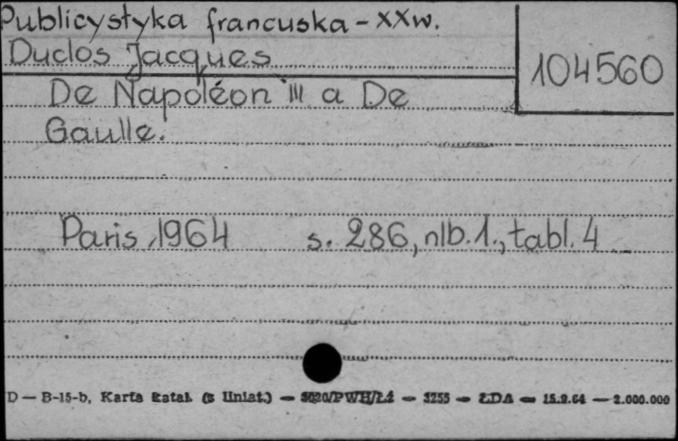 Publicystyka francuska - XXw.
Duclos Jacques
104560
De Napoléon III a De
Gaulle.
Paris, 1964 s. 286, nlb. 1., tabl. 4
D — B-15-b, Karta katal. (s liniat.) — 5020/PWH/Łś — 3255 — ŁDA — 15.9.64 — 2.000.000